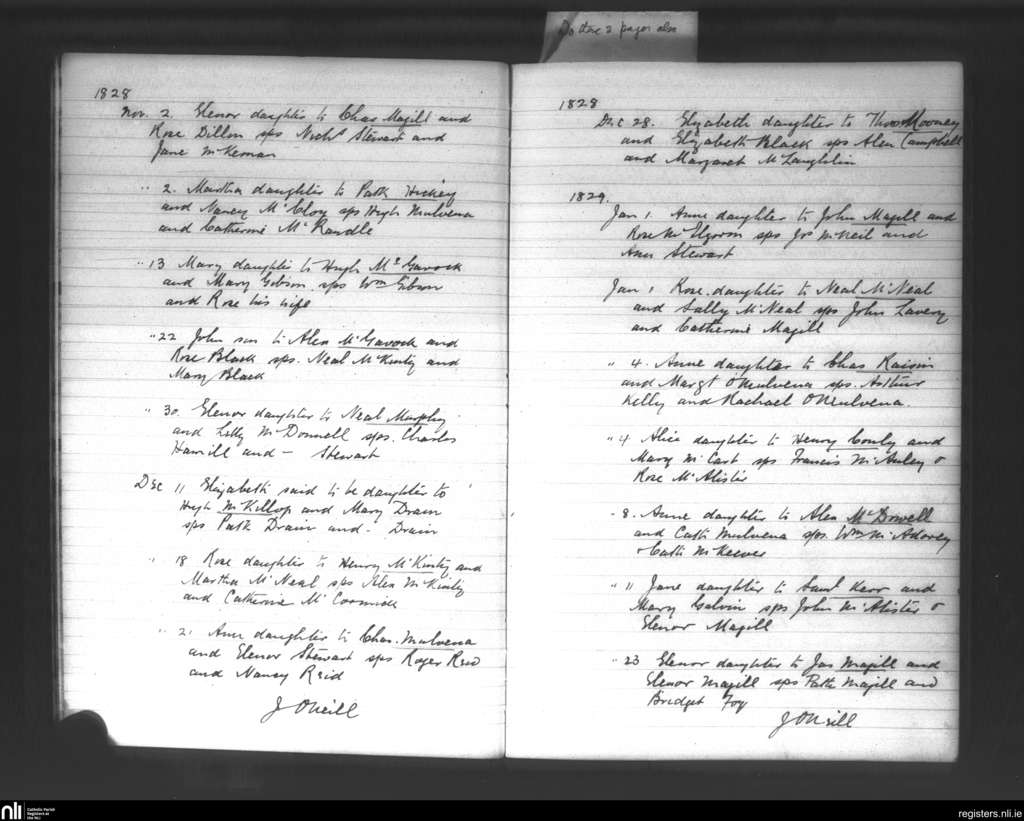 Do these 2 pages also
1828
Nov. 2. Elenor daughter to Chas Magill and
Rose Dillon sps Nichs Stewart and
Jane McKernan
" 2. Martha daughter to Patk Hickey
and Nancy McCloy sps Hugh Mulvena
and Catherine McRandle
" 13 Mary daughter to Hugh McGavock
and Mary Gibson sps Wm Gibson
and Rose his wife
" 22 John son to Alex McGavock and
Rose Black sps. Neal McKinty and
Mary Black
" 30. Elenor daughter to Neal Murphy
and Letty McDonnell sps. Charles
Hamill and - Stewart
Dec 11 Elizabeth said to be daughter to
Hugh McKillop and Mary Drain
sps Patk Drain and - Drain
" 18 Rose daughter to Henry McKinty and
Martha McNeal sps Alex McKinty
and Catherine McCormick
" 21 Ann daughter to Chas. Mulvena
and Elenor Stewart sps Roger Reid
and Nancy Reid
J O'Neill
1828
Dec 28. Elizabeth daughter to Thos Mooney
and Elizabeth Black sps Alex Campbell
and Margaret McLaughlin
1829.
Jan 1. Anne daughter to John Magill and
Rose McElgorm sps Jos McNeil and
Ann Stewart
Jan 1 Rose daughter to Neal McNeal
and Sally McNeal sps John Lavery
and Catherine Magill
" 4. Anne daughter to Chas Raisin
and Margt O'Mulvena sps. Arthur
Kelly and Rachael O'Mulvena.
" 4 Alice daughter to Henry Conly and
Mary McCart sps Francis McAuley &
Rose McAlister
" 8. Anne daughter to Alex McDowell
and Cath Mulvena sps. Wm McAdorey
& Cath McKeever
" 11 Jane daughter to Saml Kerr and
Mary Galvin sps John McAlister &
Elenor Magill
" 23 Elenor daughter to Jas Magill and
Elenor Magill sps Patk Magill and
Bridget Foy
J O'Neill
nli
Catholic Parish
Registers at
the NLI
registers.nli.ie